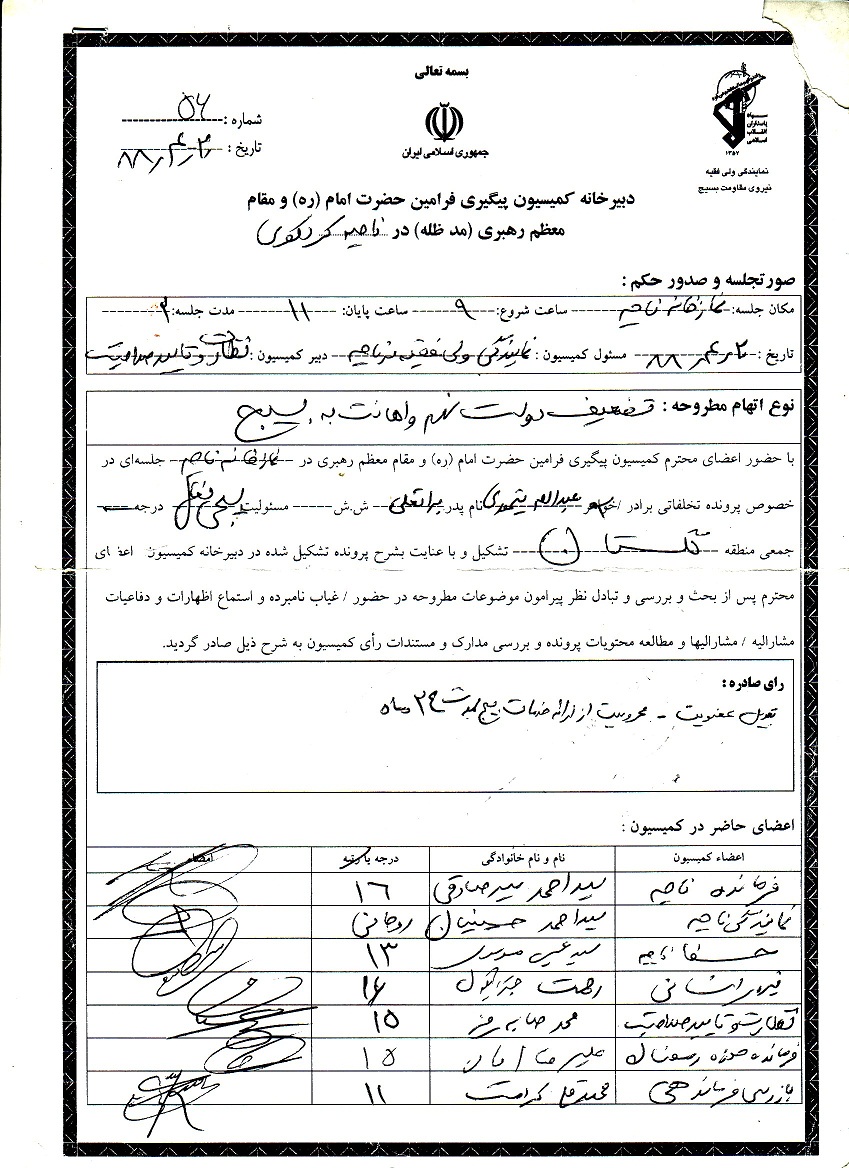 بسمه تعالی
سپاه پاسداران انقلاب اسلامی
۱۳۵۷
نمایندگی ولی فقیه
نیروی مقاومت بسیج
جمهوری اسلامی ایران
شماره : ۵۶
تاریخ : ۸۸/۴/۲
دبیرخانه کمیسیون پیگیری فرامین حضرت امام (ره) و مقام
معظم رهبری (مد ظله) در ناحیه کردکوی
صورتجلسه و صدور حکم :
مکان جلسه: نمازخانه ناحیه ساعت شروع: ۹ ساعت پایان: ۱۱ مدت جلسه: ۲
تاریخ : ۸۸/۴/۲ مسئول کمیسیون : نمایندگی ولی فقیه در ناحیه دبیر کمیسیون : نظارت و تایید صلاحیت
نوع اتهام مطروحه : تضعیف دولت نهم و اهانت به بسیج
با حضور اعضای محترم کمیسیون پیگیری فرامین حضرت امام (ره) و مقام معظم رهبری در نمازخانه ناحیه جلسه‌ای در
خصوص پرونده تخلفاتی برادر /خواهر عبداله نام پدر ش.ش مسئولیت بسیجی فعال درجه
جمعی منطقه گلستان تشکیل و با عنایت بشرح پرونده تشکیل شده در دبیرخانه کمیسیون اعضای
محترم پس از بحث و بررسی و تبادل نظر پیرامون موضوعات مطروحه در حضور / غیاب نامبرده و استماع اظهارات و دفاعیات
مشارالیه / مشارالیها و مطالعه محتویات پرونده و بررسی مدارک و مستندات رأی کمیسیون به شرح ذیل صادر گردید.
رای صادره :
عضویت - محرومیت از ارائه خدمات بسیج بمدت ۳ ماه
اعضای حاضر در کمیسیون :
اعضاء کمیسیون نام و نام خانوادگی درجه یا رتبه امضاء
فرمانده ناحیه سیداحمد میرصادقی ۱۶
نمایندگی ناحیه سیداحمد حسینیان روحانی
حفا ناحیه سید عیسی موسوی ۱۳
نیروی انسانی رحمت ۱۶
نظارت و تایید صلاحیت محمد ۱۵
فرمانده حوزه علیرضا ۱۵
بازرسی فرماندهی محمدقلی کرامت ۱۱